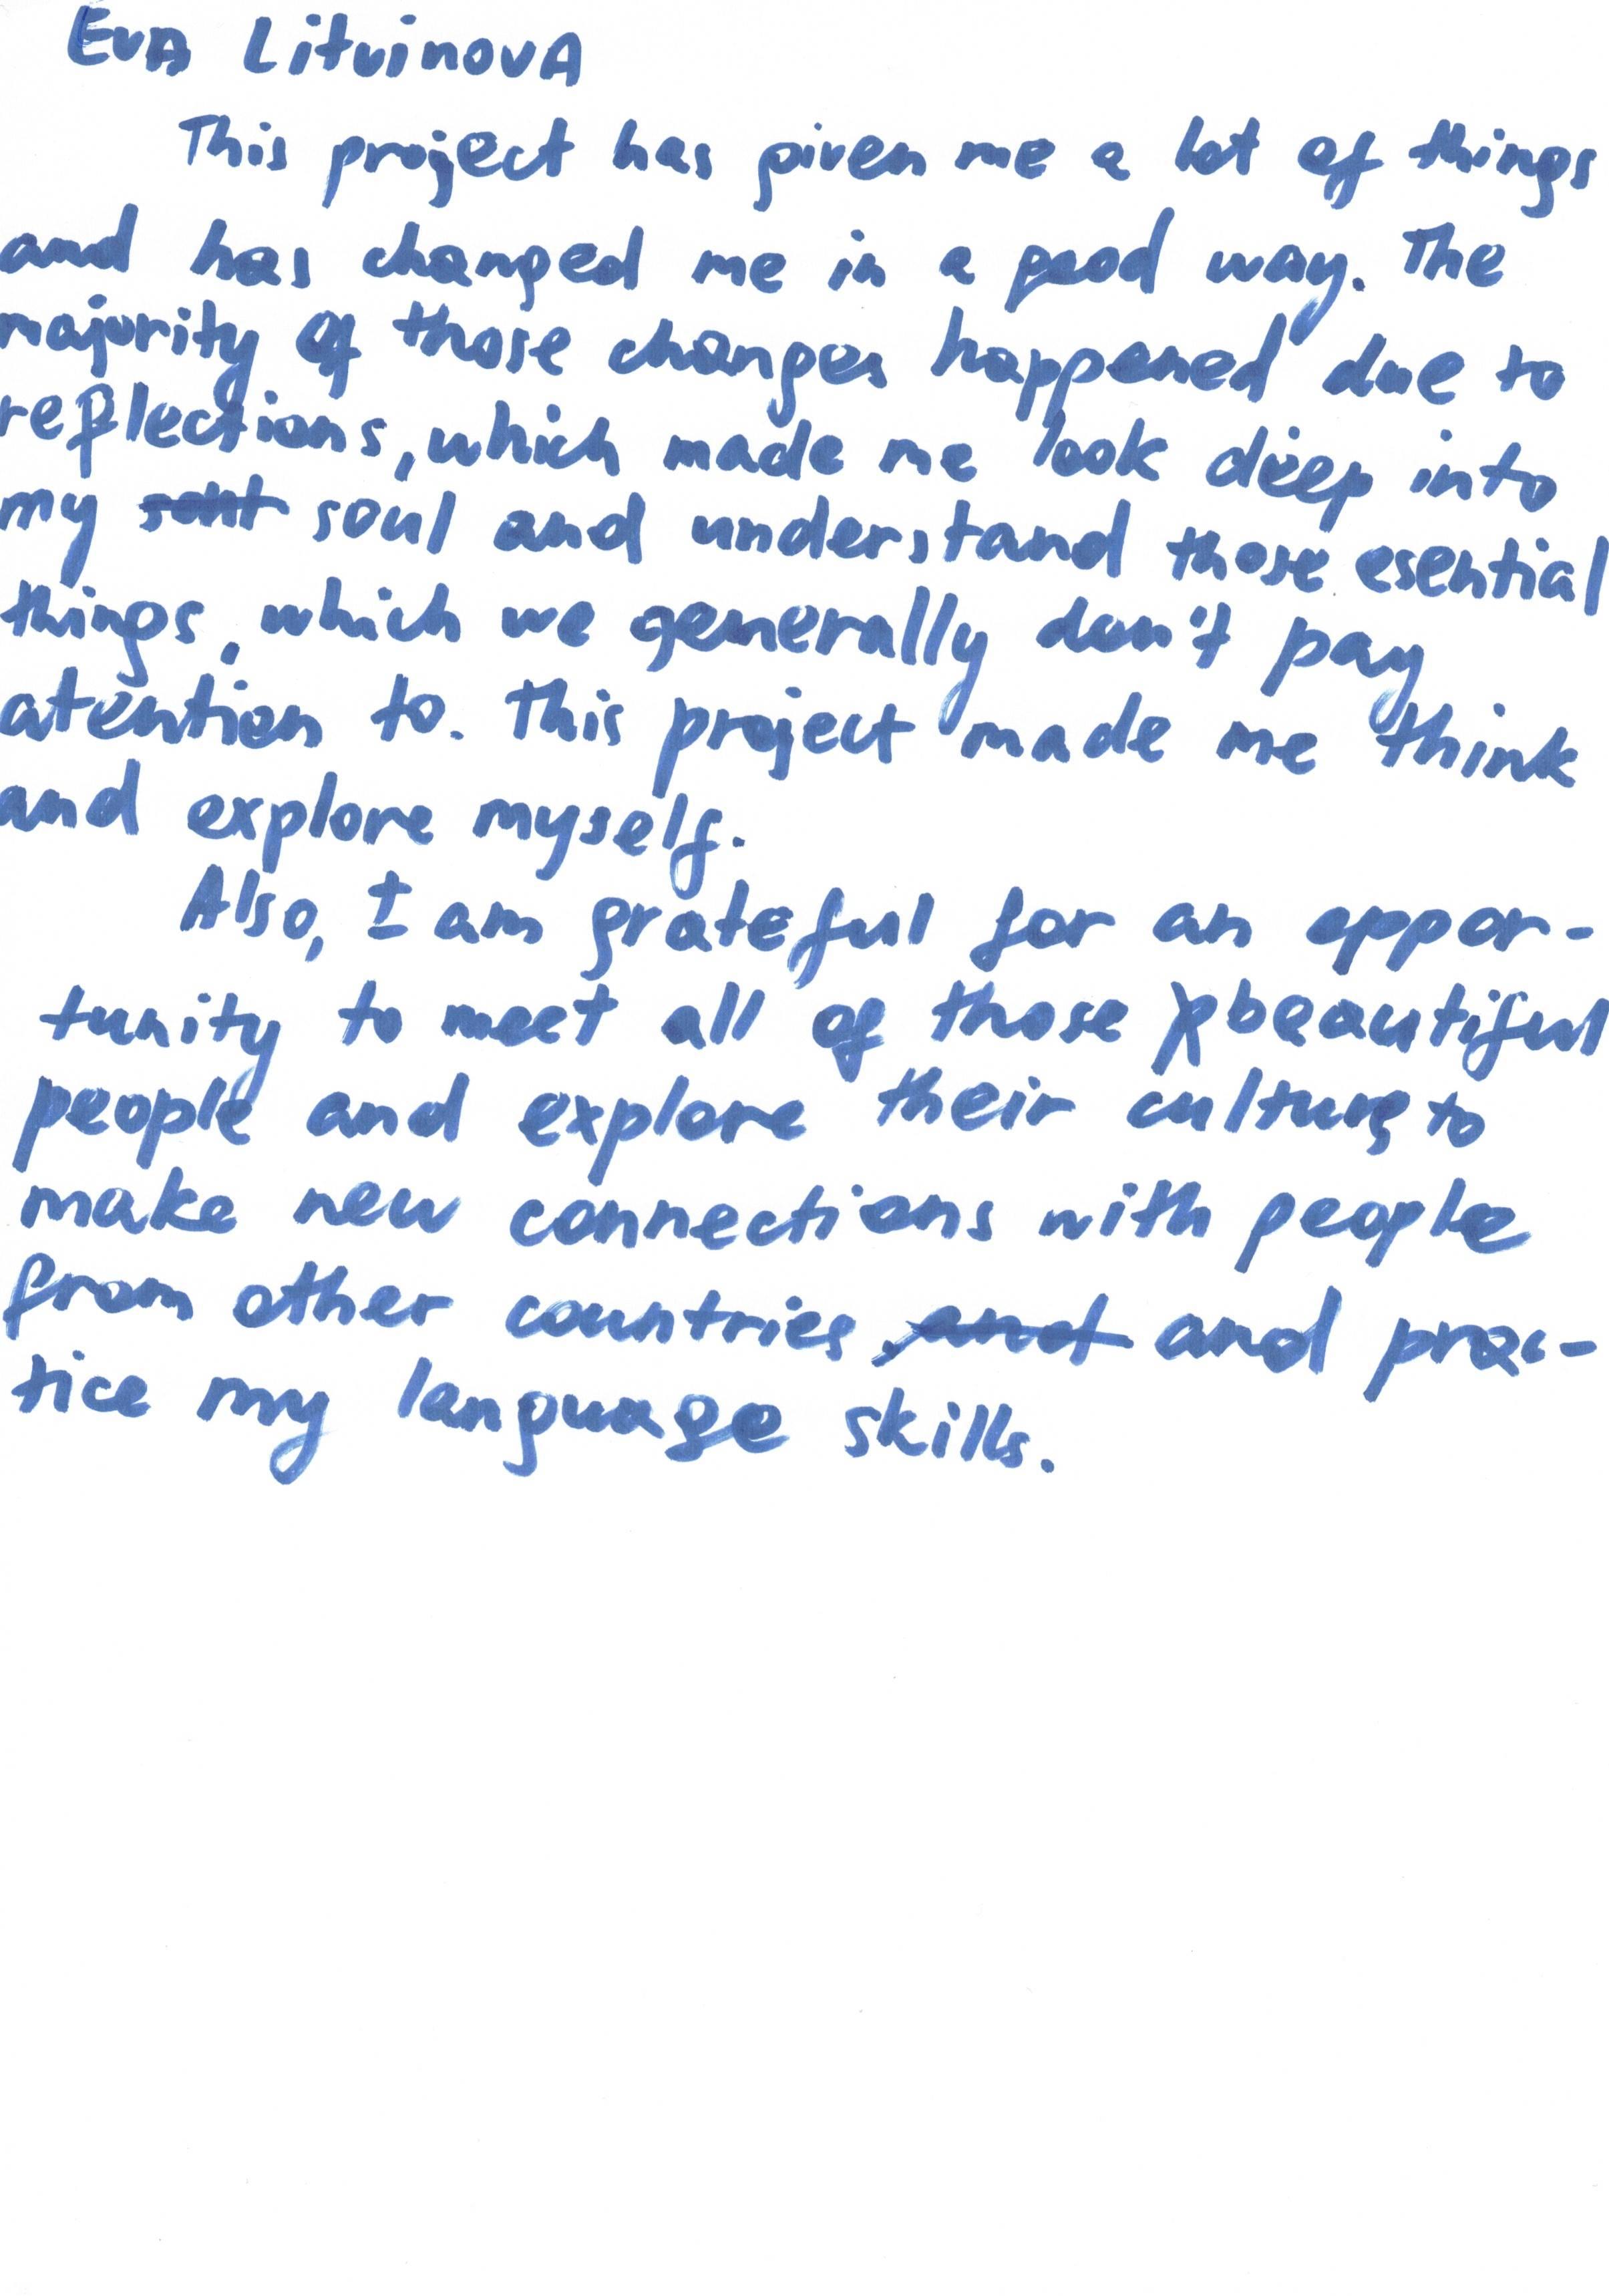 Eva Litvinova
This project has given me a lot of things
and has changed me in a good way. The
majority of those changes happened due to
reflections, which made me look deep into
my soul and understand those esential
things, which we generally don't pay
atention to. This project made me think
and explore myself.
Also, I am grateful for an oppor-
tunity to meet all of those beautiful
people and explore their culture, to
make new connections with people
from other countries and prac-
tice my language skills.